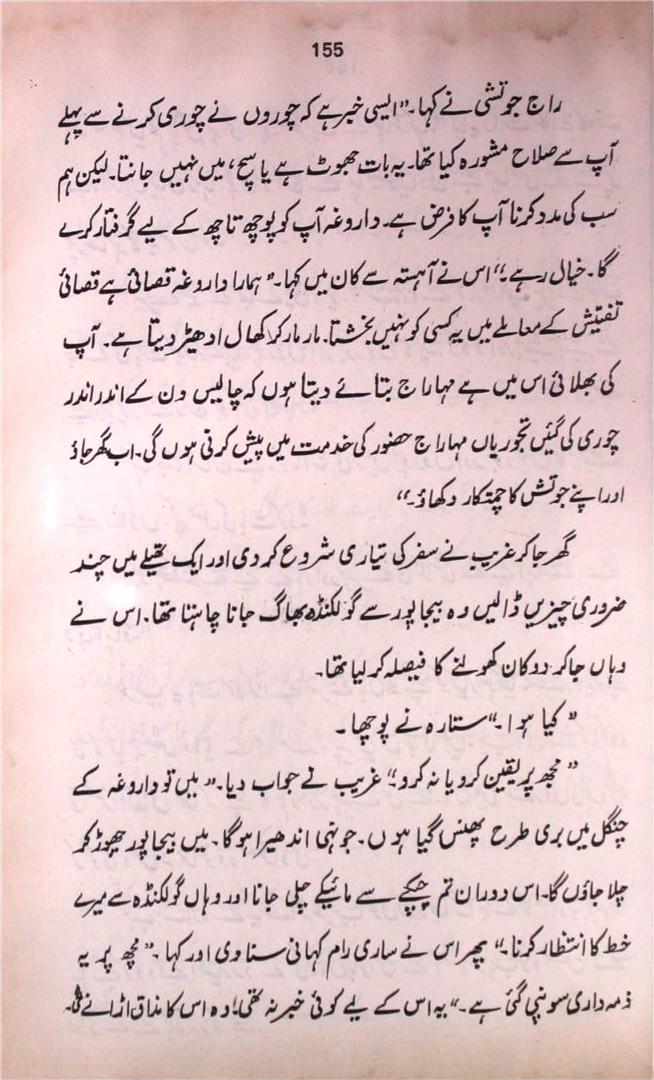 155
راج جوتشی نے کہا۔ ”ایسی خبر ہے کہ چوروں نے چوری کرنے سے پہلے
آپ سے صلاح مشورہ کیا تھا۔ یہ بات جھوٹ ہے یا سچ، میں نہیں جانتا۔ لیکن ہم
سب کی مدد کرنا آپ کا فرض ہے۔ داروغہ آپ کو پوچھ تاچھ کے لیے گرفتار کرے
گا۔ خیال رہے۔“ اس نے آہستہ سے کان میں کہا۔ ”ہمارا داروغہ قصائی ہے قصائی
تفتیش کے معاملے میں یہ کسی کو نہیں بخشتا۔ مار مار کر کھال ادھیڑ دیتا ہے۔ آپ
کی بھلائی اس میں ہے مہاراج بتائے دیتا ہوں کہ چالیس دن کے اندر اندر
چوری کی گئیں تجوریاں مہاراج حضور کی خدمت میں پیش کرنی ہوں گی۔ اب گھر جاؤ
اور اپنے جوتش کا چمتکار دکھاؤ۔“
گھر جا کر غریب نے سفر کی تیاری شروع کر دی اور ایک تھیلے میں چند
ضروری چیزیں ڈالیں وہ بیجاپور سے گولکنڈہ بھاگ جانا چاہتا تھا۔ اس نے
وہاں جا کر دوکان کھولنے کا فیصلہ کر لیا تھا۔
”کیا ہوا۔“ ستارہ نے پوچھا۔
”مجھ پر یقین کرو یا نہ کرو“ غریب نے جواب دیا۔ ”میں تو داروغہ کے
چنگل میں بری طرح پھنس گیا ہوں۔ جونہی اندھیرا ہوگا۔ میں بیجاپور چھوڑ کر
چلا جاؤں گا۔ اس دوران تم چپکے سے مائیکے چلی جانا اور وہاں گولکنڈہ سے میرے
خط کا انتظار کرنا۔“ پھر اس نے ساری رام کہانی سنا دی اور کہا۔ ”مجھ پر یہ
ذمہ داری سونپی گئی ہے۔“ یہ اس کے لیے کوئی خبر نہ تھی۔ وہ اس کا مذاق اڑانے لگی۔